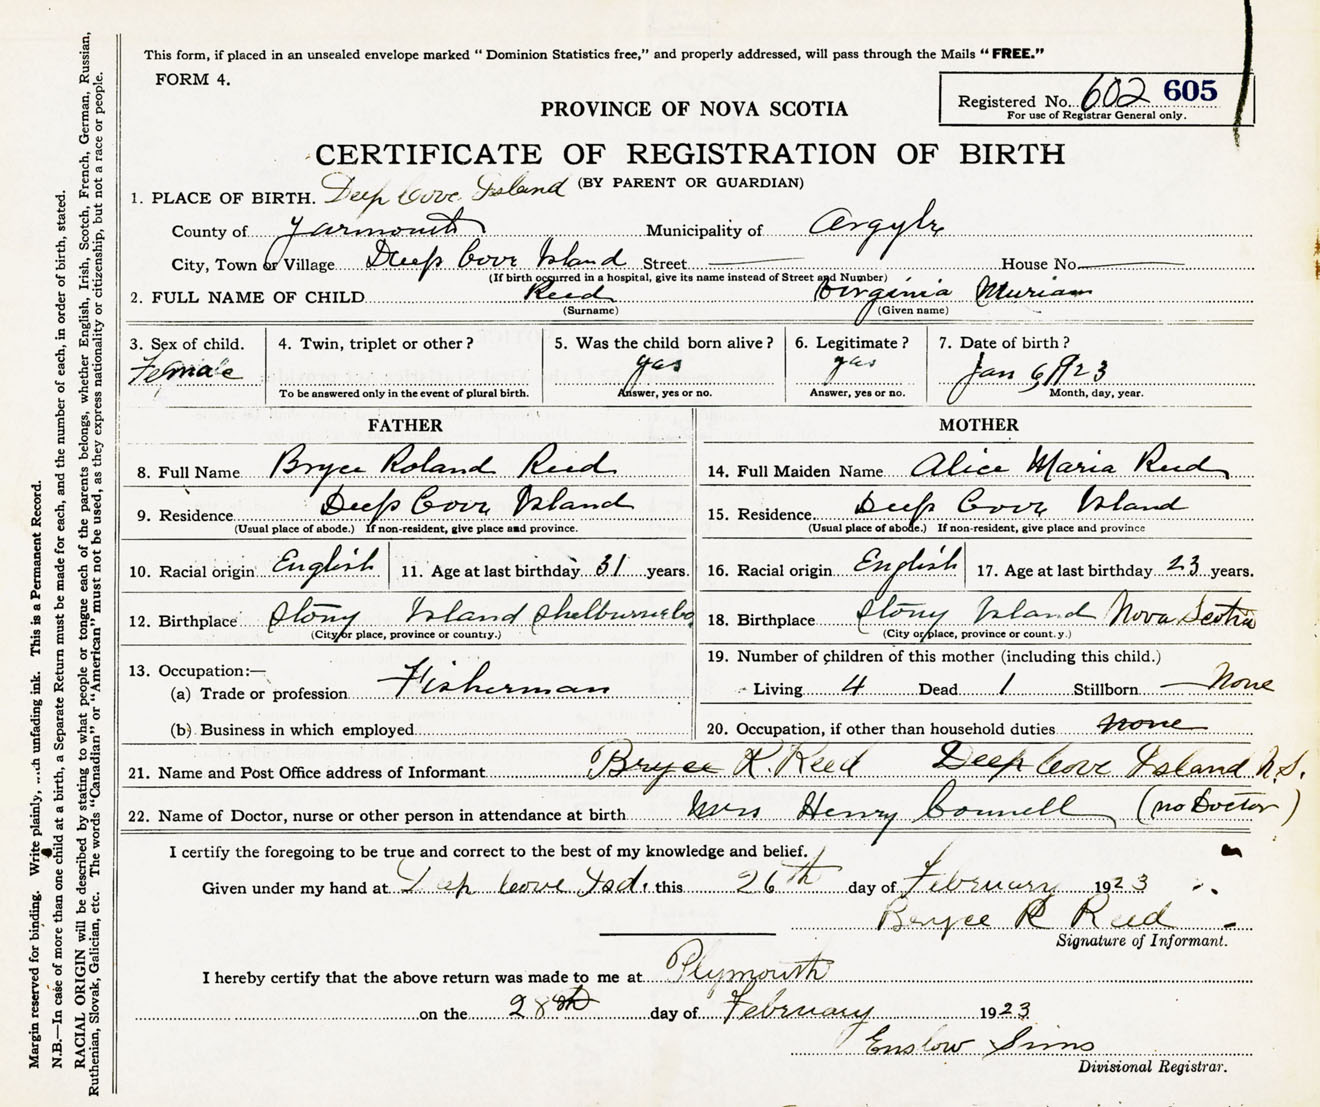 This form, if placed in an unsealed envelope marked " Dominion Statistics free," and properly addressed, will pass through the Mails "FREE."
FORM 4.
Registered No. 602 605
For use of Registrar General only.
PROVINCE OF NOVA SCOTIA
CERTIFICATE OF REGISTRATION OF BIRTH
(BY PARENT OR GUARDIAN)
1. PLACE OF BIRTH. Deep Cove Island
County of Yarmouth Municipality of Argyle
City, Town or Village Deep Cove Island Street House No.
(If birth occurred in a hospital, give its name instead of Street and Number)
2. FULL NAME OF CHILD Reed Virginia Muriam
(Surname) (Given name)
3. Sex of child. 4. Twin, triplet or other? 5. Was the child born alive? 6. Legitimate? 7. Date of birth?
Female yes yes Jan 6 1923
To be answered only in the event of plural birth. Answer, yes or no. Answer, yes or no. Month, day, year.
FATHER
8. Full Name Bryce Roland Reed
9. Residence Deep Cove Island
(Usual place of abode.) If non-resident, give place and province.
10. Racial origin English 11. Age at last birthday 31 years.
12. Birthplace Stony Island Shelburne Co
(City or place, province or country.)
13. Occupation:—
(a) Trade or profession Fisherman
(b) Business in which employed
MOTHER
14. Full Maiden Name Alice Maria Reed
15. Residence Deep Cove Island
(Usual place of abode.) If non-resident, give place and province
16. Racial origin English 17. Age at last birthday 23 years.
18. Birthplace Stony Island Nova Scotia
(City or place, province or count.y.)
19. Number of children of this mother (including this child.)
Living 4 Dead 1 Stillborn None
20. Occupation, if other than household duties none
21. Name and Post Office address of Informant Bryce R. Reed Deep Cove Island N.S.
22. Name of Doctor, nurse or other person in attendance at birth Mrs Henry Connell (no Doctor)
I certify the foregoing to be true and correct to the best of my knowledge and belief.
Given under my hand at Deep Cove Isd. this 26th day of February 1923
Bryce R Reed
Signature of Informant.
I hereby certify that the above return was made to me at Plymouth
on the 28th day of February 1923
Enslow Sims
Divisional Registrar.
Margin reserved for binding. Write plainly, ...ch unfading ink. This is a Permanent Record.
N.B.—In case of more than one child at a birth, a Separate Return must be made for each, and the number of each, in order of birth, stated.
RACIAL ORIGIN will be described by stating to what people or tongue each of the parents belongs, whether English, Irish, Scotch, French, German, Russian,
Ruthenian, Slovak, Galician, etc. The words "Canadian" or "American" must not be used, as they express nationality or citizenship, but not a race or people.